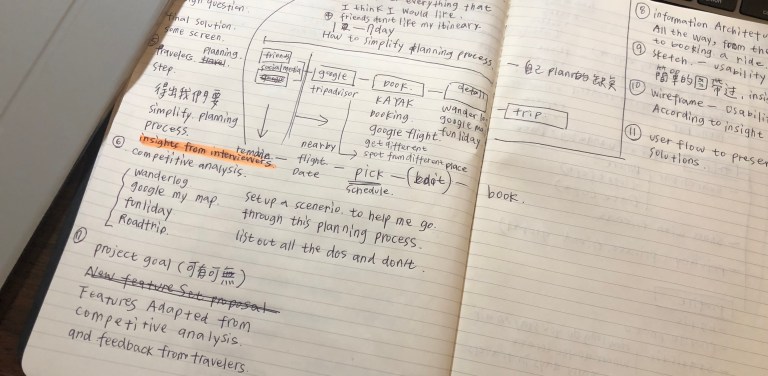 question.
final solution.
home screen.
travelers planning.
step.
得出我們要
simplify planning
process.
⑥ insights from interviewers
competitive analysis.
wanderlog
google my map.
funliday
Roadtrip.
⑦ project goal (可有可無)
New feature Set proposal
Features Adapted from
competitive analysis.
and feedback from travelers.
everything that
I think I would like.
friends don't like my itineary
1 — 7 day
How to simplify planning process
friend
social media
google
tripadvisor
book.
KAYAK
booking
google flight
get different
spot from different place
detail
google
funliday
nearby
flight.
Date
— PICK —
schedule.
set up a scenerio. to help me go.
through this planning process.
list out all the dos and don't.
— 自己 plan的
trip
book.
⑧ information
All the way, from
to booking a ride
⑨ sketch. — usability
簡單的
⑩ wireframe —
According to insight
⑪ user flow to
solutions.